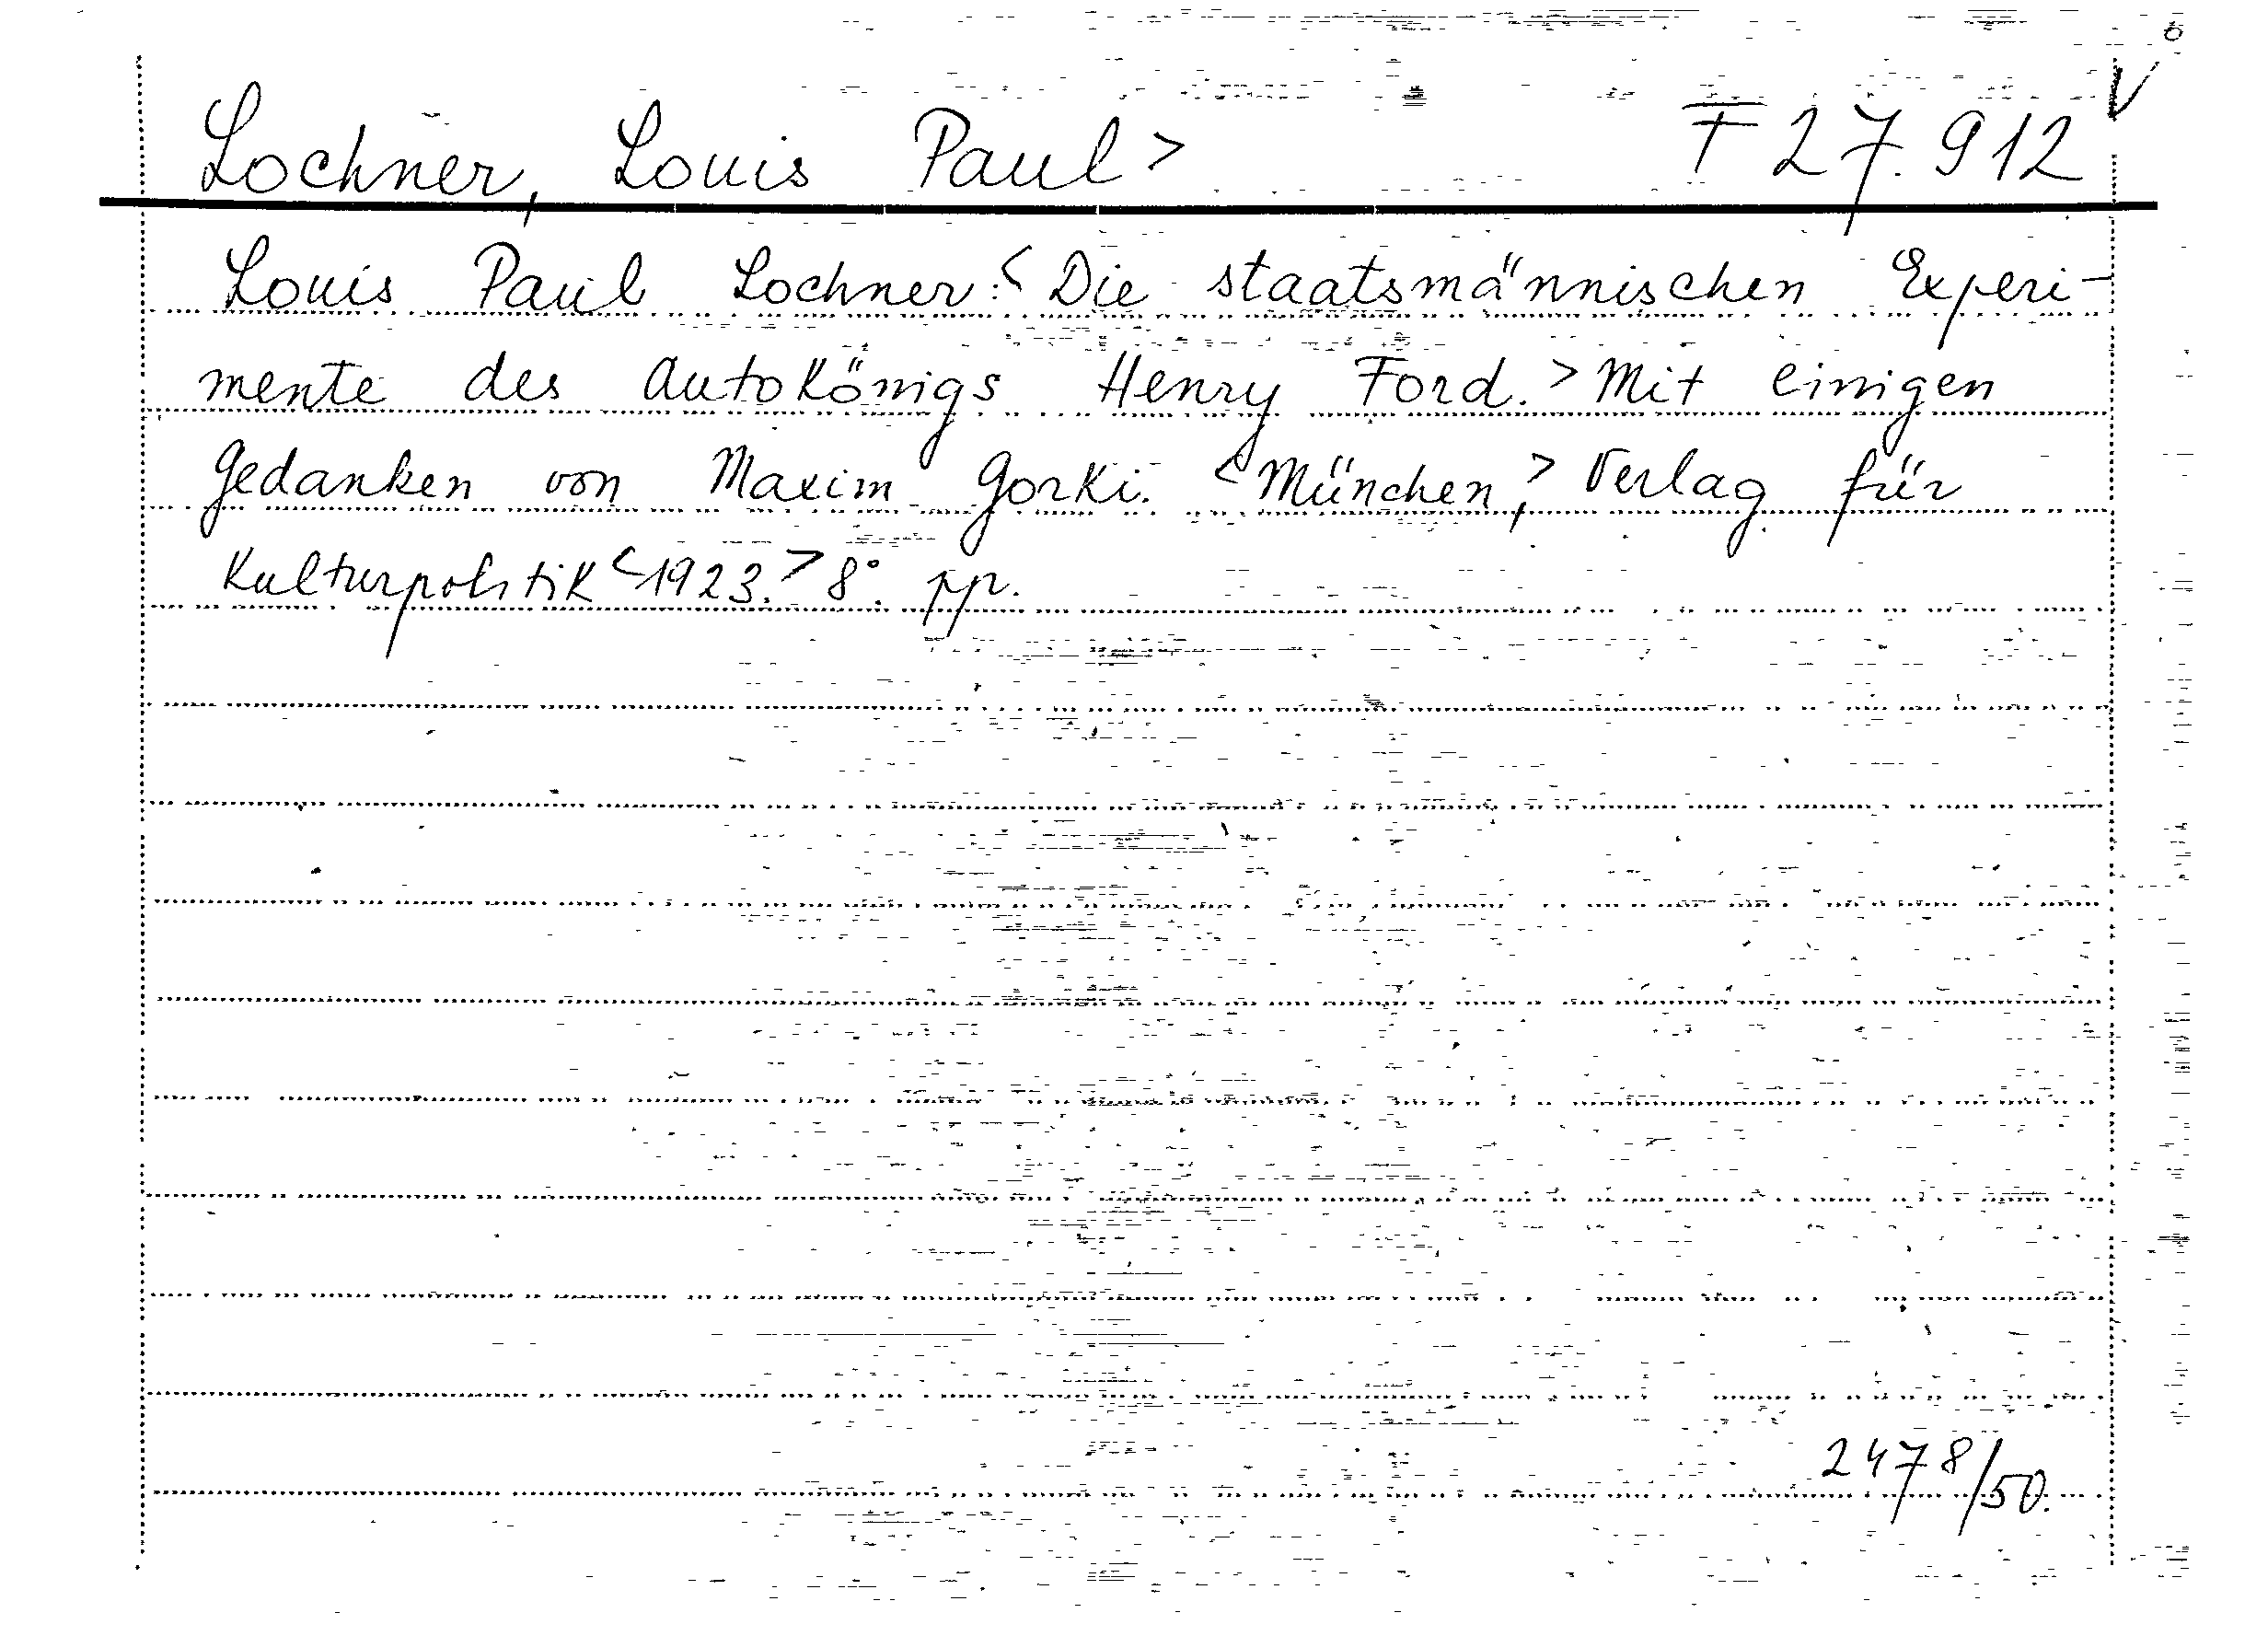 Lochner, Louis Paul> F 27.912
Louis Paul Lochner:< Die staatsmännischen Experi-
mente des Autokönigs Henry Ford.> Mit einigen
Gedanken von Maxim Gorki. <München,> Verlag für
Kulturpolitik <1923.> 8°. pp.
2478/50.